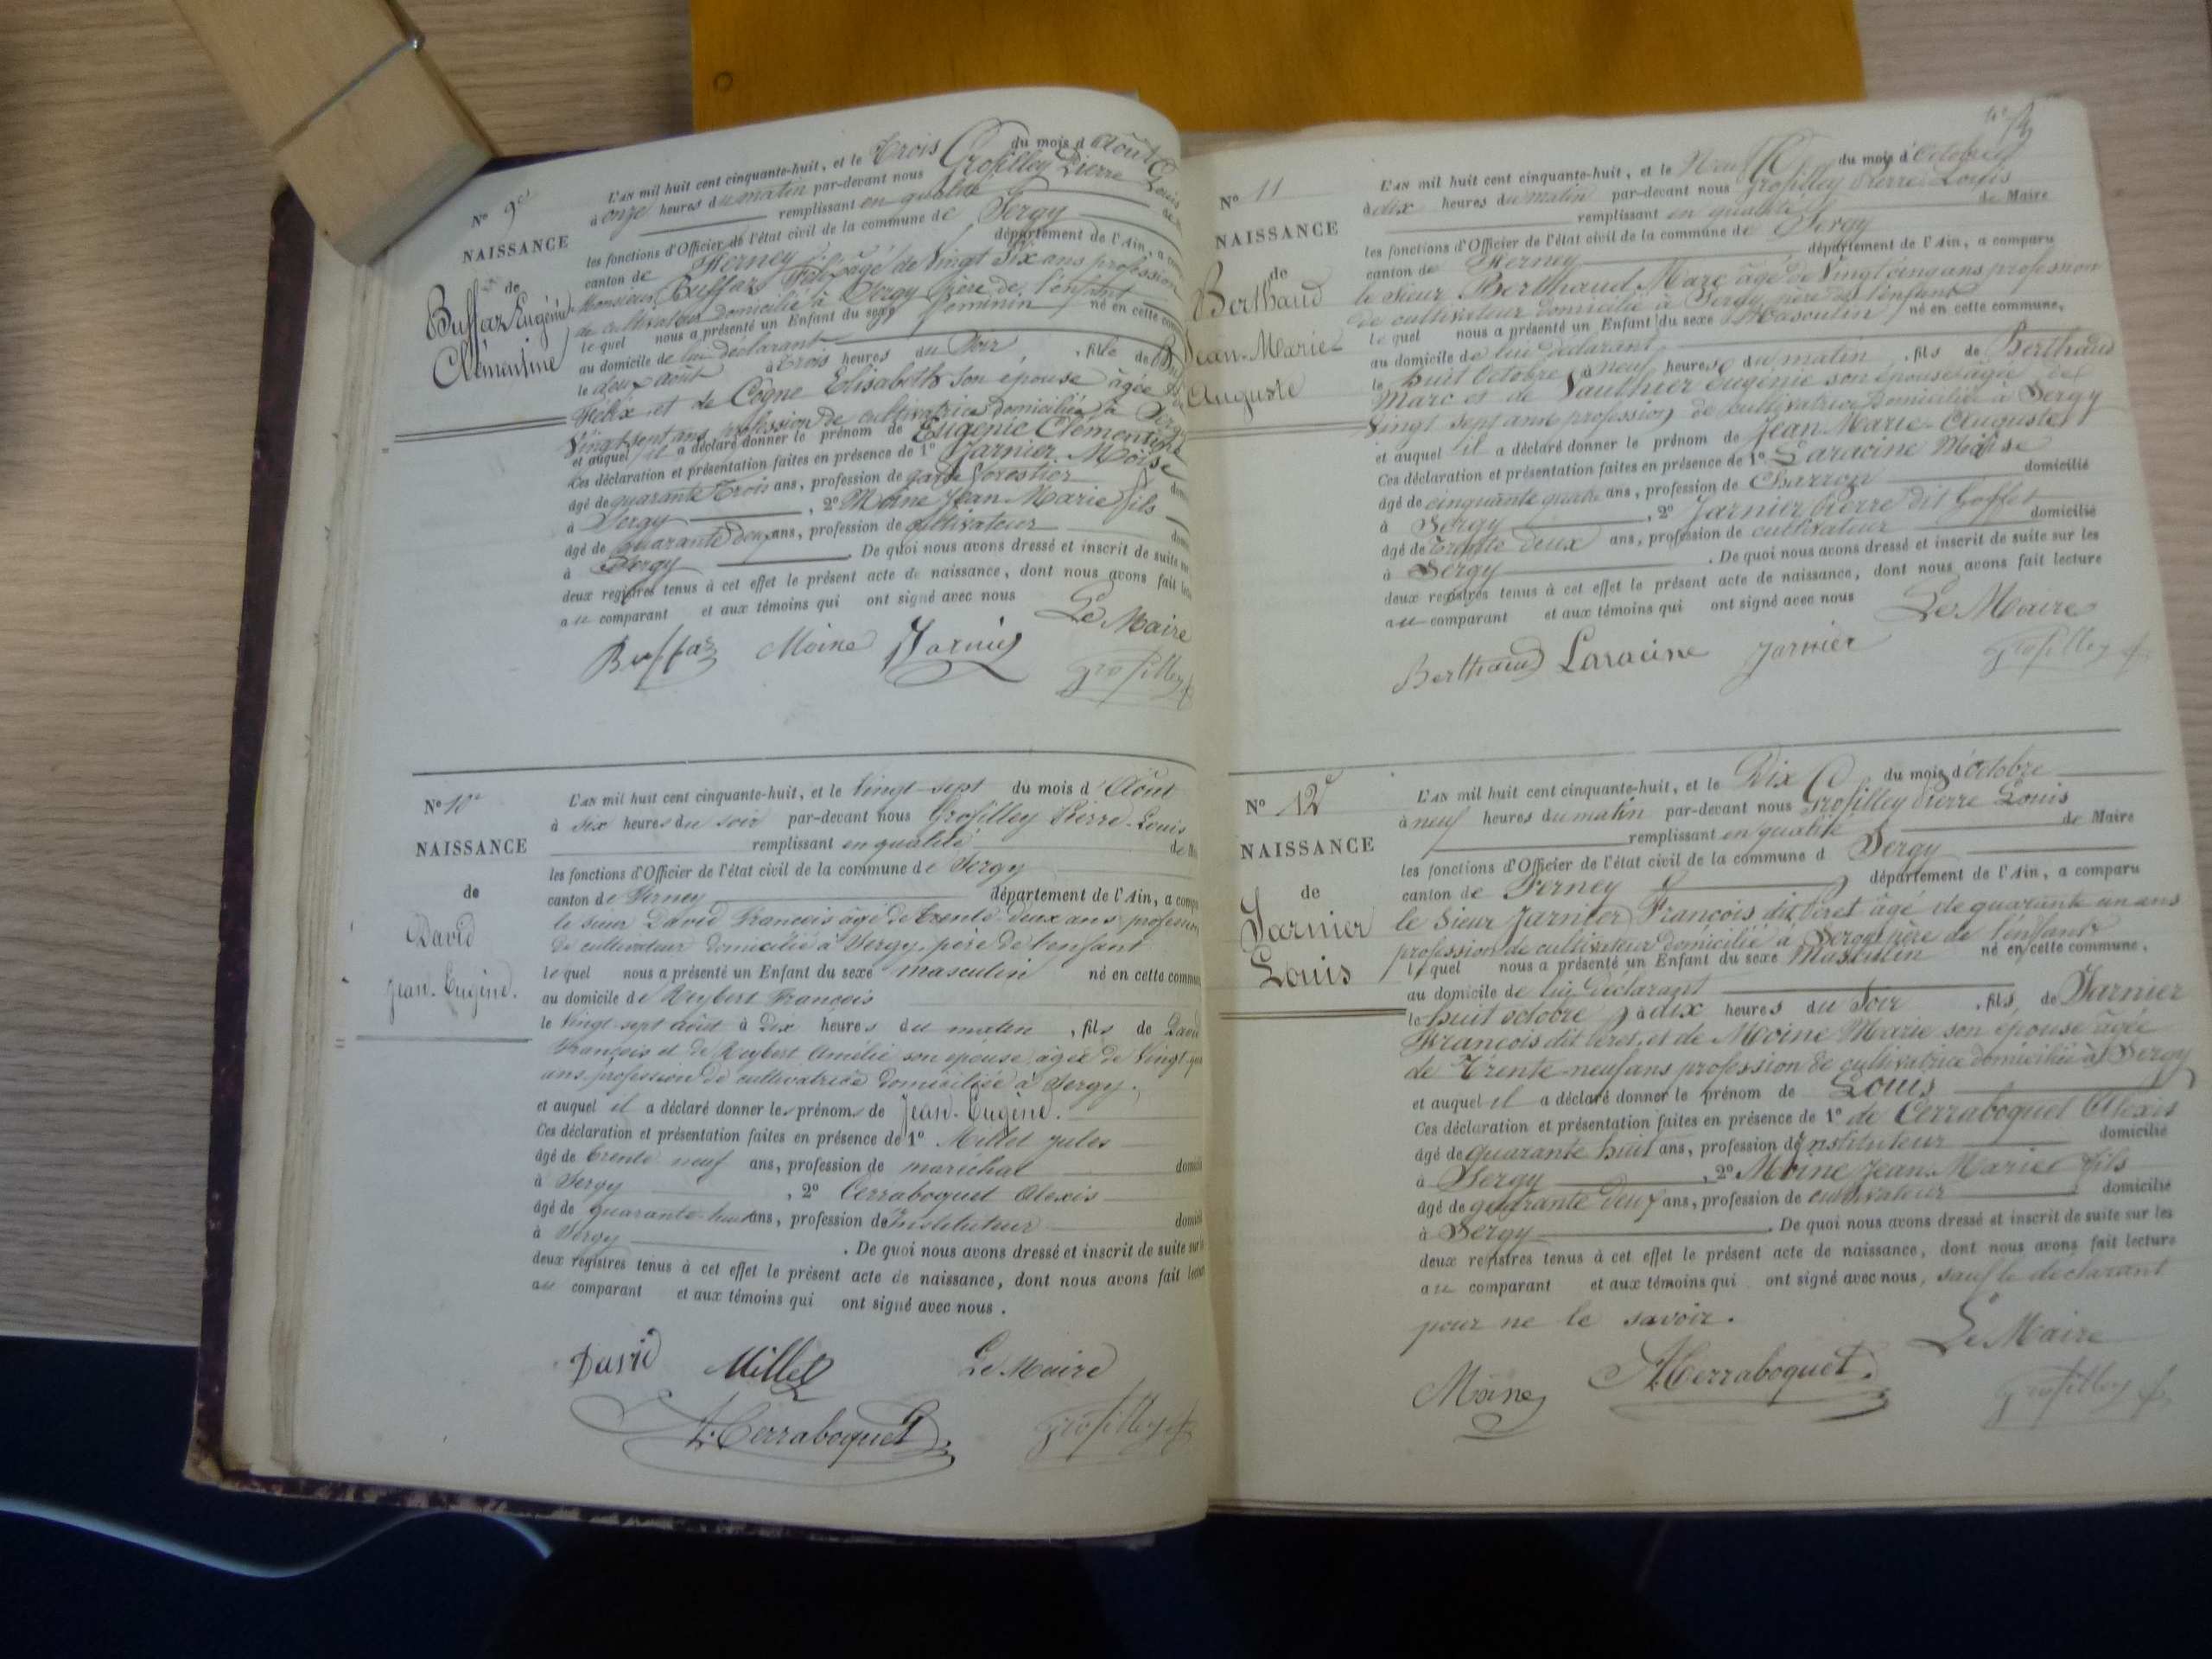 N° 9e
NAISSANCE
de
Buffaz Eugénie
Clémentine
L'AN mil huit cent cinquante-huit, et le Trois du mois d'Août
à onze heures du matin par-devant nous Grosilley Pierre Louis
remplissant en qualité de
les fonctions d'Officier de l'état civil de la commune de Sergy
canton de Ferney département de l'Ain, a
Monsieur Buffaz Félix âgé de Vingt Six ans profession
de cultivateur domicilié à Sergy père de l'enfant
lequel nous a présenté un Enfant du sexe féminin né en cette
au domicile de lui déclarant
le deux août à trois heures du Soir , fille de
Félix et de Cogne Elisabeth son épouse âgée de
Vingt sept ans profession de cultivatrice domiciliée à Sergy
et auquel il a déclaré donner le prénom de Eugénie Clémentine
Ces déclaration et présentation faites en présence de 1° Jarnier Moïse
âgé de quarante trois ans, profession de garde forestier
à Sergy , 2° Moine Jean Marie fils
âgé de quarante deux ans, profession de cultivateur
à Sergy . De quoi nous avons dressé et inscrit de suite
deux registres tenus à cet effet le présent acte de naissance, dont nous avons fait
au comparant et aux témoins qui ont signé avec nous
Le Maire
Buffaz Moine Jarnier
Grosilley
N° 10e
NAISSANCE
de
David
Jean-Eugène.
L'AN mil huit cent cinquante-huit, et le Vingt-sept du mois d'Août
à six heures du soir par-devant nous Grosilley Pierre-Louis
remplissant en qualité de
les fonctions d'Officier de l'état civil de la commune de Sergy
canton de Ferney département de l'Ain, a
le sieur David François âgé de trente-deux ans profession
de cultivateur domicilié à Sergy, père de l'enfant
lequel nous a présenté un Enfant du sexe masculin né en cette
au domicile de Reybert François
le Vingt-sept août à Dix heures du matin , fils de David
François et de Reybert Amélie son épouse âgée de Vingt
ans, profession de cultivatrice domiciliée à Sergy,
et auquel il a déclaré donner les prénoms de Jean-Eugène.
Ces déclaration et présentation faites en présence de 1° Millet Jules
âgé de trente neuf ans, profession de maréchal
à Sergy , 2° Cerraboquet Alexis
âgé de quarante-huit ans, profession de Instituteur
à Sergy . De quoi nous avons dressé et inscrit de suite
deux registres tenus à cet effet le présent acte de naissance, dont nous avons fait
au comparant et aux témoins qui ont signé avec nous.
David Millet Le Maire
A. Cerraboquet Grosilley
N° 11
NAISSANCE
de
Berthaud
Jean-Marie
Auguste
L'AN mil huit cent cinquante-huit, et le Neuf du mois d'Octobre
à dix heures du matin par-devant nous Grosilley Pierre Louis
remplissant en qualité de Maire
les fonctions d'Officier de l'état civil de la commune de Sergy
canton de Ferney département de l'Ain, a comparu
le Sieur Berthaud Marc âgé de Vingt cinq ans profession
de cultivateur domicilié à Sergy père de l'enfant
lequel nous a présenté un Enfant du sexe Masculin né en cette commune,
au domicile de lui déclarant
le huit Octobre à neuf heures du matin , fils de Berthaud
Marc et de Vauthier Eugénie son épouse âgée de
Vingt sept ans profession de cultivatrice domiciliée à Sergy
et auquel il a déclaré donner le prénom de Jean Marie-Auguste
Ces déclaration et présentation faites en présence de 1° Laracine Moïse
âgé de cinquante quatre ans, profession de Charron domicilié
à Sergy , 2° Jarnier Pierre dit
âgé de trente deux ans, profession de cultivateur domicilié
à Sergy . De quoi nous avons dressé et inscrit de suite sur les
deux registres tenus à cet effet le présent acte de naissance, dont nous avons fait lecture
au comparant et aux témoins qui ont signé avec nous
Le Maire
Berthaud Laracine Jarnier
Grosilley
N° 12e
NAISSANCE
de
Jarnier
Louis
L'AN mil huit cent cinquante-huit, et le Dix du mois d'Octobre
à neuf heures du matin par-devant nous Grosilley Pierre Louis
remplissant en qualité de Maire
les fonctions d'Officier de l'état civil de la commune d Sergy
canton de Ferney département de l'Ain, a comparu
le Sieur Jarnier François dit âgé de quarante un ans
profession de cultivateur domicilié à Sergy père de l'enfant
lequel nous a présenté un Enfant du sexe Masculin né en cette commune,
au domicile de lui déclarant
le huit octobre à dix heures du Soir , fils de Jarnier
François dit et de Moine Marie son épouse âgée
de Trente-neuf ans profession de cultivatrice domiciliée à Sergy
et auquel il a déclaré donner le prénom de Louis
Ces déclaration et présentation faites en présence de 1° de Cerraboquet Alexis
âgé de quarante huit ans, profession d'Instituteur domicilié
à Sergy , 2° Moine Jean Marie fils
âgé de quarante deux ans, profession de cultivateur domicilié
à Sergy . De quoi nous avons dressé et inscrit de suite sur les
deux registres tenus à cet effet le présent acte de naissance, dont nous avons fait lecture
au comparant et aux témoins qui ont signé avec nous, sauf le déclarant
pour ne le savoir.
Le Maire
Moine A. Cerraboquet
Grosilley